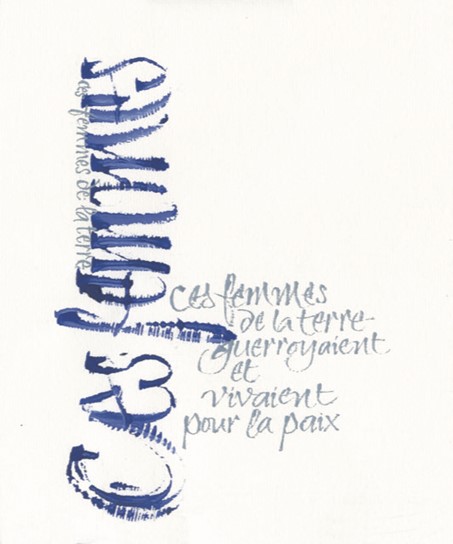 Ces femmes
ces femmes de la terre
ces femmes
de la terre
guerroyaient
et
vivaient
pour la paix